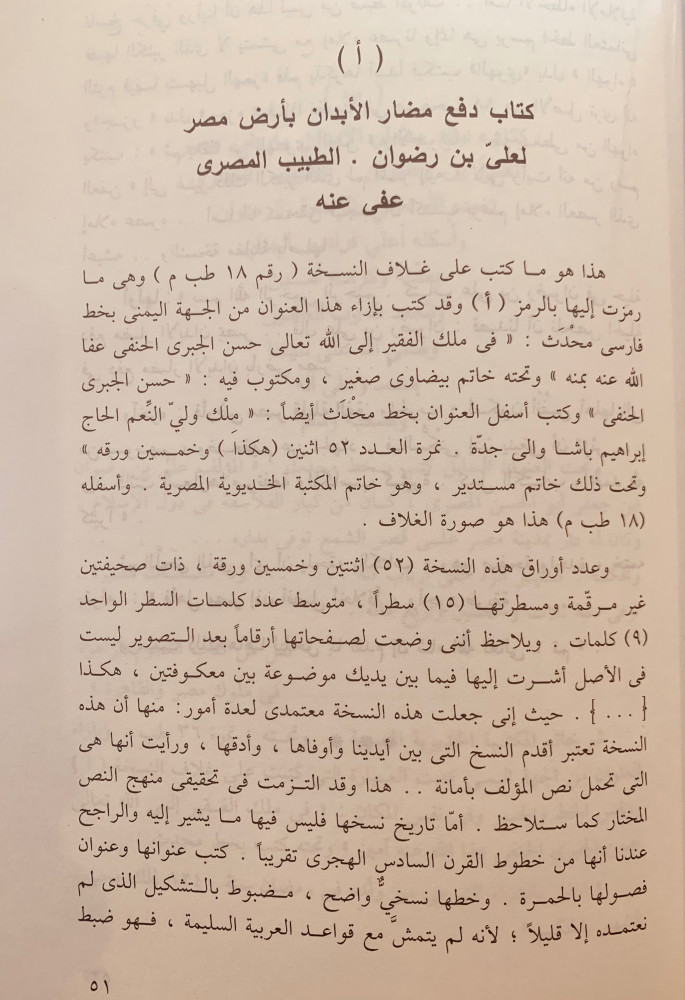 ( أ )
كتاب دفع مضار الأبدان بأرض مصر
لعلىّ بن رضوان . الطبيب المصرى
عفى عنه
هذا هو ما كتب على غلاف النسخة ( رقم ١٨ طب م ) وهى ما
رمزت إليها بالرمز ( أ ) وقد كتب بإزاء هذا العنوان من الجهة اليمنى بخط
فارسى محْدَث : « فى ملك الفقير إلى الله تعالى حسن الجبرى الحنفى عفا
الله عنه بمنه » وتحته خاتم بيضاوى صغير ، ومكتوب فيه : « حسن الجبرى
الحنفى » وكتب أسفل العنوان بخط محْدَث أيضاً : « مِلْك ولىّ النِّعم الحاج
إبراهيم باشا والى جدّة . نمرة العدد ٥٢ اثنين (هكذا ) وخمسين ورقه »
وتحت ذلك خاتم مستدير ، وهو خاتم المكتبة الخديوية المصرية . وأسفله
(١٨ طب م) هذا هو صورة الغلاف .
وعدد أوراق هذه النسخة (٥٢) اثنتين وخمسين ورقة ، ذات صحيفتين
غير مرقّمة ومسطرتها (١٥) سطراً ، متوسط عدد كلمات السطر الواحد
(٩) كلمات . ويلاحظ أننى وضعت لصفحاتها أرقاماً بعد التصوير ليست
فى الأصل أشرت إليها فيما بين يديك موضوعة بين معكوفتين ، هكذا
{ ... } . حيث إنى جعلت هذه النسخة معتمدى لعدة أمور: منها أن هذه
النسخة تعتبر أقدم النسخ التى بين أيدينا وأوفاها ، وأدقها ، ورأيت أنها هى
التى تحمل نص المؤلف بأمانة .. هذا وقد التزمت فى تحقيقى منهج النص
المختار كما ستلاحظ . أمّا تاريخ نسخها فليس فيها ما يشير إليه والراجح
عندنا أنها من خطوط القرن السادس الهجرى تقريباً . كتب عنوانها وعنوان
فصولها بالحمرة . وخطها نسخىٌّ واضح ، مضبوط بالتشكيل الذى لم
نعتمده إلا قليلاً ؛ لأنه لم يتمشَّ مع قواعد العربية السليمة ، فهو ضبط
٥١